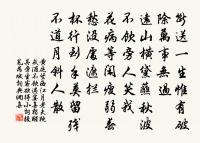 斷送一生惟有破
除萬事無過
遠山橫黛蘸秋波
不飲旁人笑我
花病等閑瘦弱春
愁沒處遮攔
杯行到手莫留殘
不道月斜人散
黃庭堅西江月老夫既
戒酒不飲遇宴集獨醒
其旁坐客欲得小詞援
筆為賦